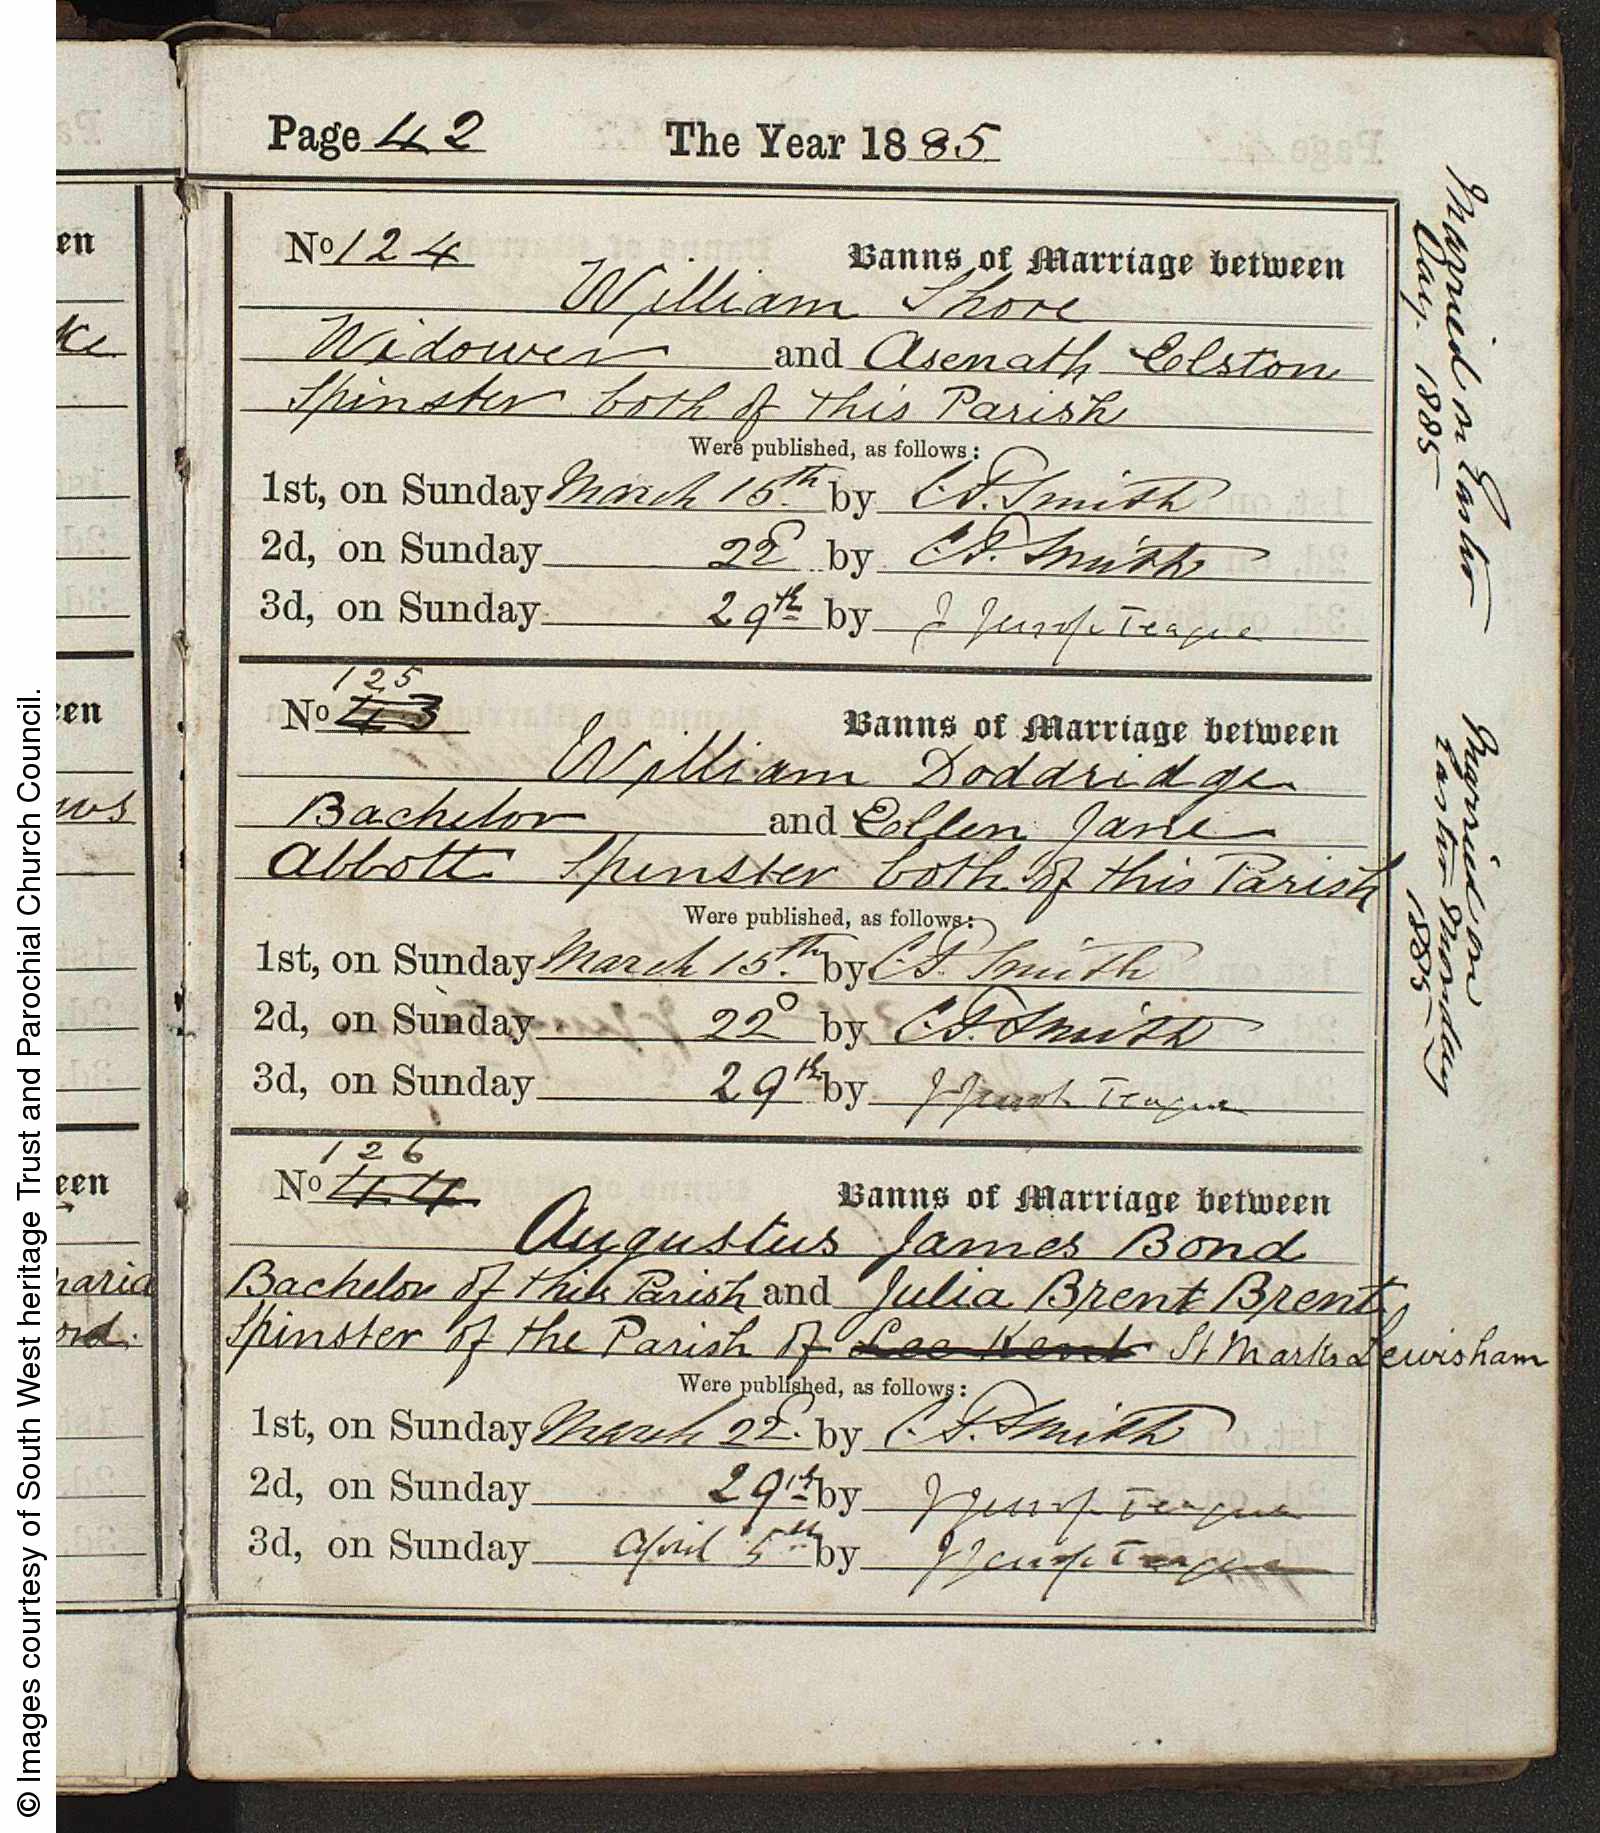 Page 42 The Year 1885
No 124 Banns of Marriage between
William Shore
Widower and Asenath Elston
Spinster both of this Parish
Were published, as follows:
1st, on Sunday March 15th by C.F. Smith
2d, on Sunday 22d by C.F. Smith
3d, on Sunday 29th by J Jessop Teague
125
No 43 Banns of Marriage between
William Doddridge
Bachelor and Ellen Jane
Abbott Spinster both of this Parish
Were published, as follows:
1st, on Sunday March 15th by C.F. Smith
2d, on Sunday 22d by C.F. Smith
3d, on Sunday 29th by J Jessop Teague
126
No 44 Banns of Marriage between
Augustus James Bond
Bachelor of this Parish and Julia Brent Brent
Spinster of the Parish of Lee Kent St Marks Lewisham
Were published, as follows:
1st, on Sunday March 22d. by C.F. Smith
2d, on Sunday 29th by J Jessop Teague
3d, on Sunday April 5th by J Jessop Teague
Married on Easter
Day. 1885
Married on
Easter Monday
1885
en
ke
een
ws
een
maria
ord.
© Images courtesy of South West heritage Trust and Parochial Church Council.